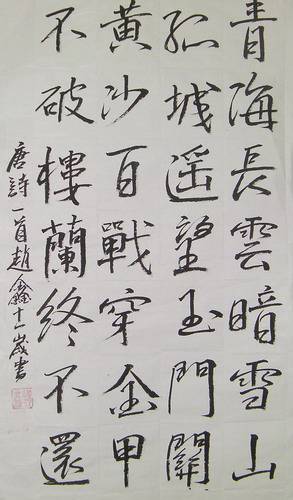 青海長雲暗雪山
孤城遥望玉門關
黄沙百戰穿金甲
不破樓蘭終不還
唐詩一首趙鑫十一歲書